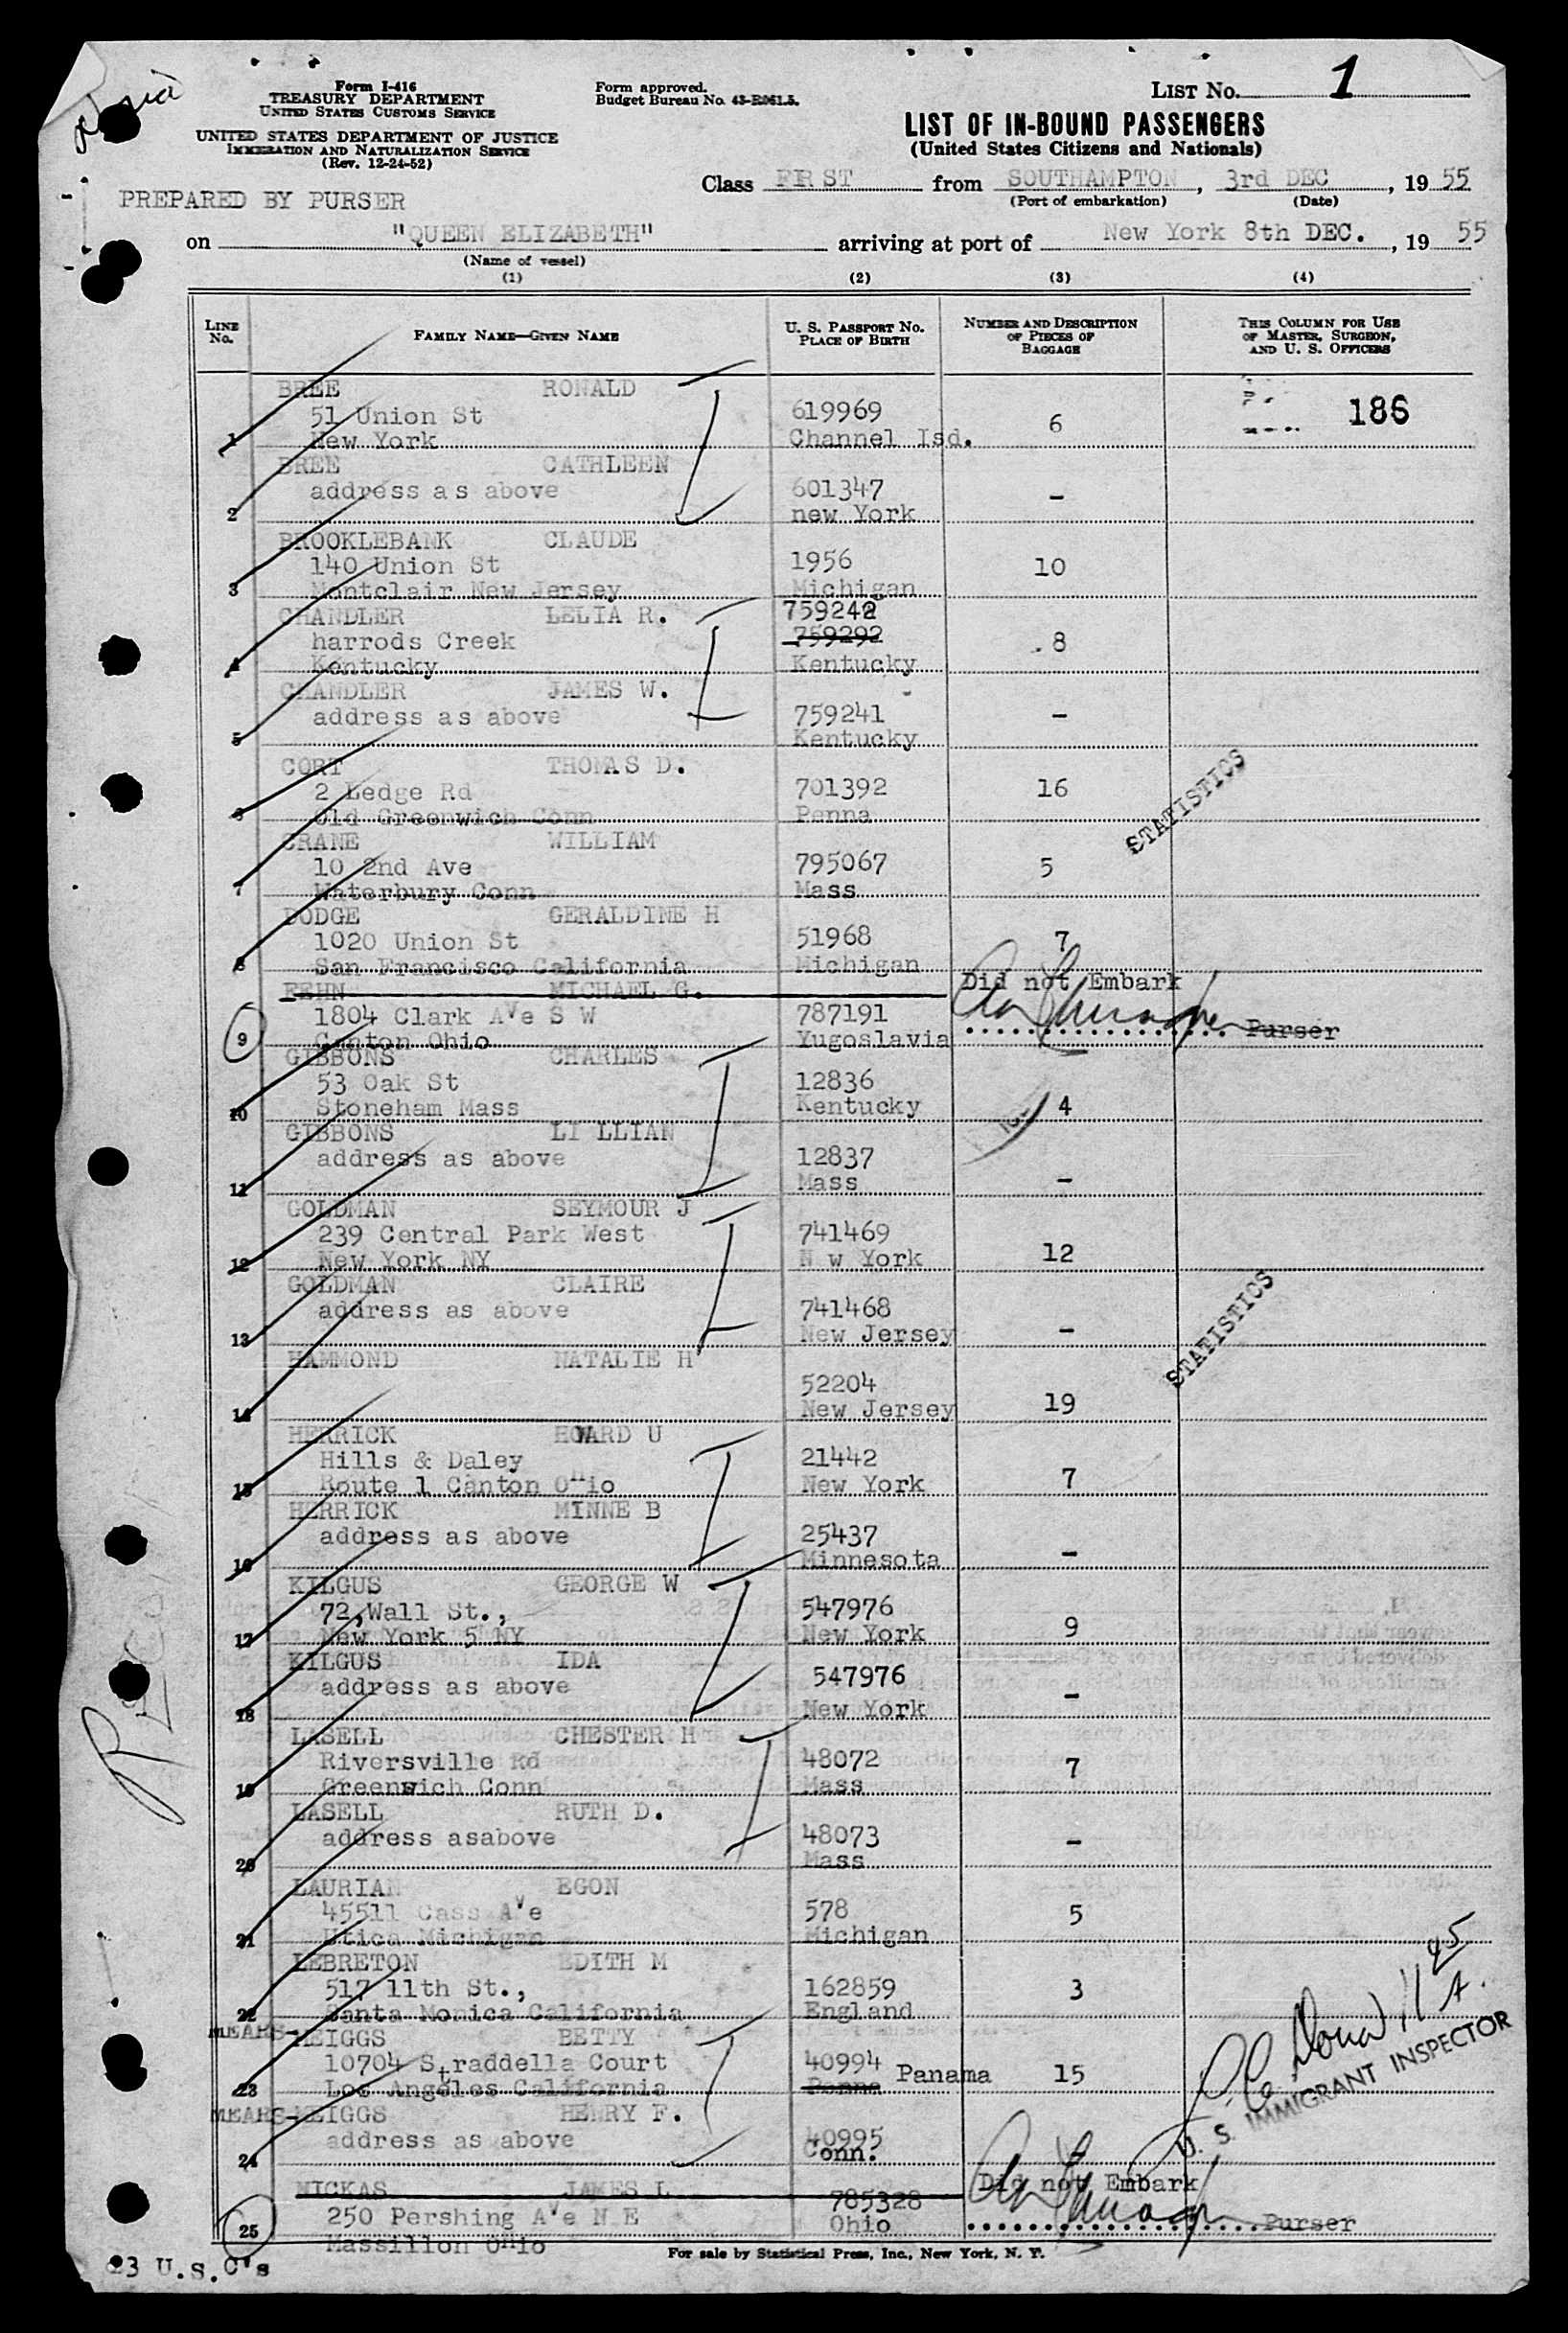 Form I-416
TREASURY DEPARTMENT
UNITED STATES CUSTOMS SERVICE
UNITED STATES DEPARTMENT OF JUSTICE
IMMIGRATION AND NATURALIZATION SERVICE
(Rev. 12-24-52)
Form approved.
Budget Bureau No. 43-R061.5.
LIST No. 1
LIST OF IN-BOUND PASSENGERS
(United States Citizens and Nationals)
Class FIRST from SOUTHAMPTON, 3rd DEC, 19 55
(Port of embarkation) (Date)
PREPARED BY PURSER
on "QUEEN ELIZABETH" arriving at port of New York 8th DEC., 19 55
(Name of vessel)
(1) (2) (3) (4)
LINE No. FAMILY NAME—GIVEN NAME U. S. PASSPORT No. PLACE OF BIRTH NUMBER AND DESCRIPTION OF PIECES OF BAGGAGE THIS COLUMN FOR USE OF MASTER, SURGEON, AND U. S. OFFICERS
BREE RONALD
51 Union St 619969 6 186
1 New York Channel Isd.
BREE CATHLEEN
address as above 601347 -
2 new York
BROOKLEBANK CLAUDE
140 Union St 1956 10
3 Montclair New Jersey Michigan
CHANDLER LELIA R. 759242
harrods Creek 759292 8
4 Kentucky Kentucky
CHANDLER JAMES W.
address as above 759241 -
5 Kentucky
CORT THOMAS D.
2 Ledge Rd 701392 16
6 Old Greenwich Conn Penna
STATISTICS
CRANE WILLIAM
10 2nd Ave 795067 5
7 Waterbury Conn Mass
DODGE GERALDINE H
1020 Union St 51968 7
8 San Francisco California Michigan
FEHN MICHAEL G. Did not Embark
1804 Clark Ave S W 787191
9 Canton Ohio Yugoslavia Purser
GIBBONS CHARLES
53 Oak St 12836
10 Stoneham Mass Kentucky 4
GIBBONS LI LLIAN
address as above 12837
11 Mass -
GOLDMAN SEYMOUR J
239 Central Park West 741469
12 New York NY N w York 12
GOLDMAN CLAIRE
address as above 741468
13 New Jersey -
STATISTICS
HAMMOND NATALIE H
52204
14 New Jersey 19
HERRICK HOWARD U
Hills & Daley 21442
15 Route 1 Canton Ohio New York 7
HERRICK MINNE B
address as above 25437
16 Minnesota -
KILGUS GEORGE W
72,Wall St., 547976
17 New York 5 NY New York 9
KILGUS IDA
address as above 547976
18 New York -
LASELL CHESTER H
Riversville Rd 48072 7
19 Greenwich Conn Mass
LASELL RUTH D.
address asabove 48073 -
20 Mass
LAURIAN EGON
45511 Cass Ave 578 5
21 Utica Michigan Michigan
LEBRETON EDITH M
517 11th St., 162859 3
22 Santa Monica California England
MEARS-MEIGGS BETTY
10704 Straddella Court 40994 Panama 15
23 Los Angeles California Penna
U. S. IMMIGRANT INSPECTOR
MEARS-MEIGGS HENRY F.
address as above 40995
24 Conn. -
NICKAS JAMES L Did not Embark
250 Pershing Ave N E 785328
25 Massillon Ohio Ohio Purser
For sale by Statistical Press, Inc., New York, N. Y.
23 U.S.C's